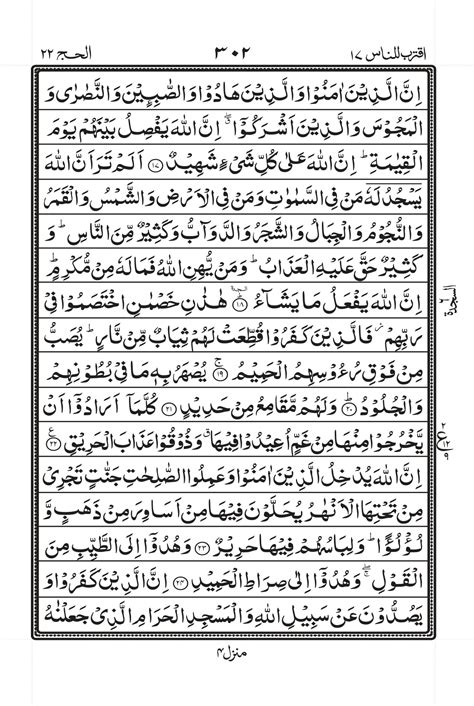 اقترب للناس ۱۷ ۳۰۲ الحج ۲۲
اِنَّ الَّذِيْنَ اٰمَنُوْا وَالَّذِيْنَ هَادُوْا وَالصّٰبِـِٕيْنَ وَالنَّصٰرٰى وَ
الْمَجُوْسَ وَالَّذِيْنَ اَشْرَكُوْۤا ۖ اِنَّ اللّٰهَ يَفْصِلُ بَيْنَهُمْ يَوْمَ
الْقِيٰمَةِ ؕ اِنَّ اللّٰهَ عَلٰى كُلِّ شَیْءٍ شَهِيْدٌ ﴿۱۷﴾ اَلَمْ تَرَ اَنَّ اللّٰهَ
يَسْجُدُ لَهٗ مَنْ فِى السَّمٰوٰتِ وَمَنْ فِى الْاَرْضِ وَالشَّمْسُ وَالْقَمَرُ
وَالنُّجُوْمُ وَالْجِبَالُ وَالشَّجَرُ وَالدَّوَآبُّ وَكَثِيْرٌ مِّنَ النَّاسِ ؕ وَ
كَثِيْرٌ حَقَّ عَلَيْهِ الْعَذَابُ ؕ وَمَنْ يُّهِنِ اللّٰهُ فَمَا لَهٗ مِنْ مُّكْرِمٍ ؕ
اِنَّ اللّٰهَ يَفْعَلُ مَا يَشَآءُ ﴿۱۸﴾ هٰذٰنِ خَصْمٰنِ اخْتَصَمُوْا فِىْ
السجدة ٦
رَبِّهِمْ ؗ فَالَّذِيْنَ كَفَرُوْا قُطِّعَتْ لَهُمْ ثِيَابٌ مِّنْ نَّارٍ ؕ يُصَبُّ
مِنْ فَوْقِ رُءُوْسِهِمُ الْحَمِيْمُ ۚ ﴿۱۹﴾ يُصْهَرُ بِهٖ مَا فِىْ بُطُوْنِهِمْ
وَالْجُلُوْدُ ؕ ﴿۲۰﴾ وَلَهُمْ مَّقَامِعُ مِنْ حَدِيْدٍ ﴿۲۱﴾ كُلَّمَاۤ اَرَادُوْۤا اَنْ
يَّخْرُجُوْا مِنْهَا مِنْ غَمٍّ اُعِيْدُوْا فِيْهَا ۗ وَذُوْقُوْا عَذَابَ الْحَرِيْقِ ﴿۲۲﴾ ع
۲ ع ۱۲ ۹
اِنَّ اللّٰهَ يُدْخِلُ الَّذِيْنَ اٰمَنُوْا وَعَمِلُوا الصّٰلِحٰتِ جَنّٰتٍ تَجْرِىْ
مِنْ تَحْتِهَا الْاَنْهٰرُ يُحَلَّوْنَ فِيْهَا مِنْ اَسَاوِرَ مِنْ ذَهَبٍ وَّ
لُؤْلُؤًا ؕ وَلِبَاسُهُمْ فِيْهَا حَرِيْرٌ ﴿۲۳﴾ وَهُدُوْۤا اِلَى الطَّيِّبِ مِنَ
الْقَوْلِ ۖۚ وَهُدُوْۤا اِلٰى صِرَاطِ الْحَمِيْدِ ﴿۲۴﴾ اِنَّ الَّذِيْنَ كَفَرُوْا وَ
يَصُدُّوْنَ عَنْ سَبِيْلِ اللّٰهِ وَالْمَسْجِدِ الْحَرَامِ الَّذِىْ جَعَلْنٰهُ
منزل ۴